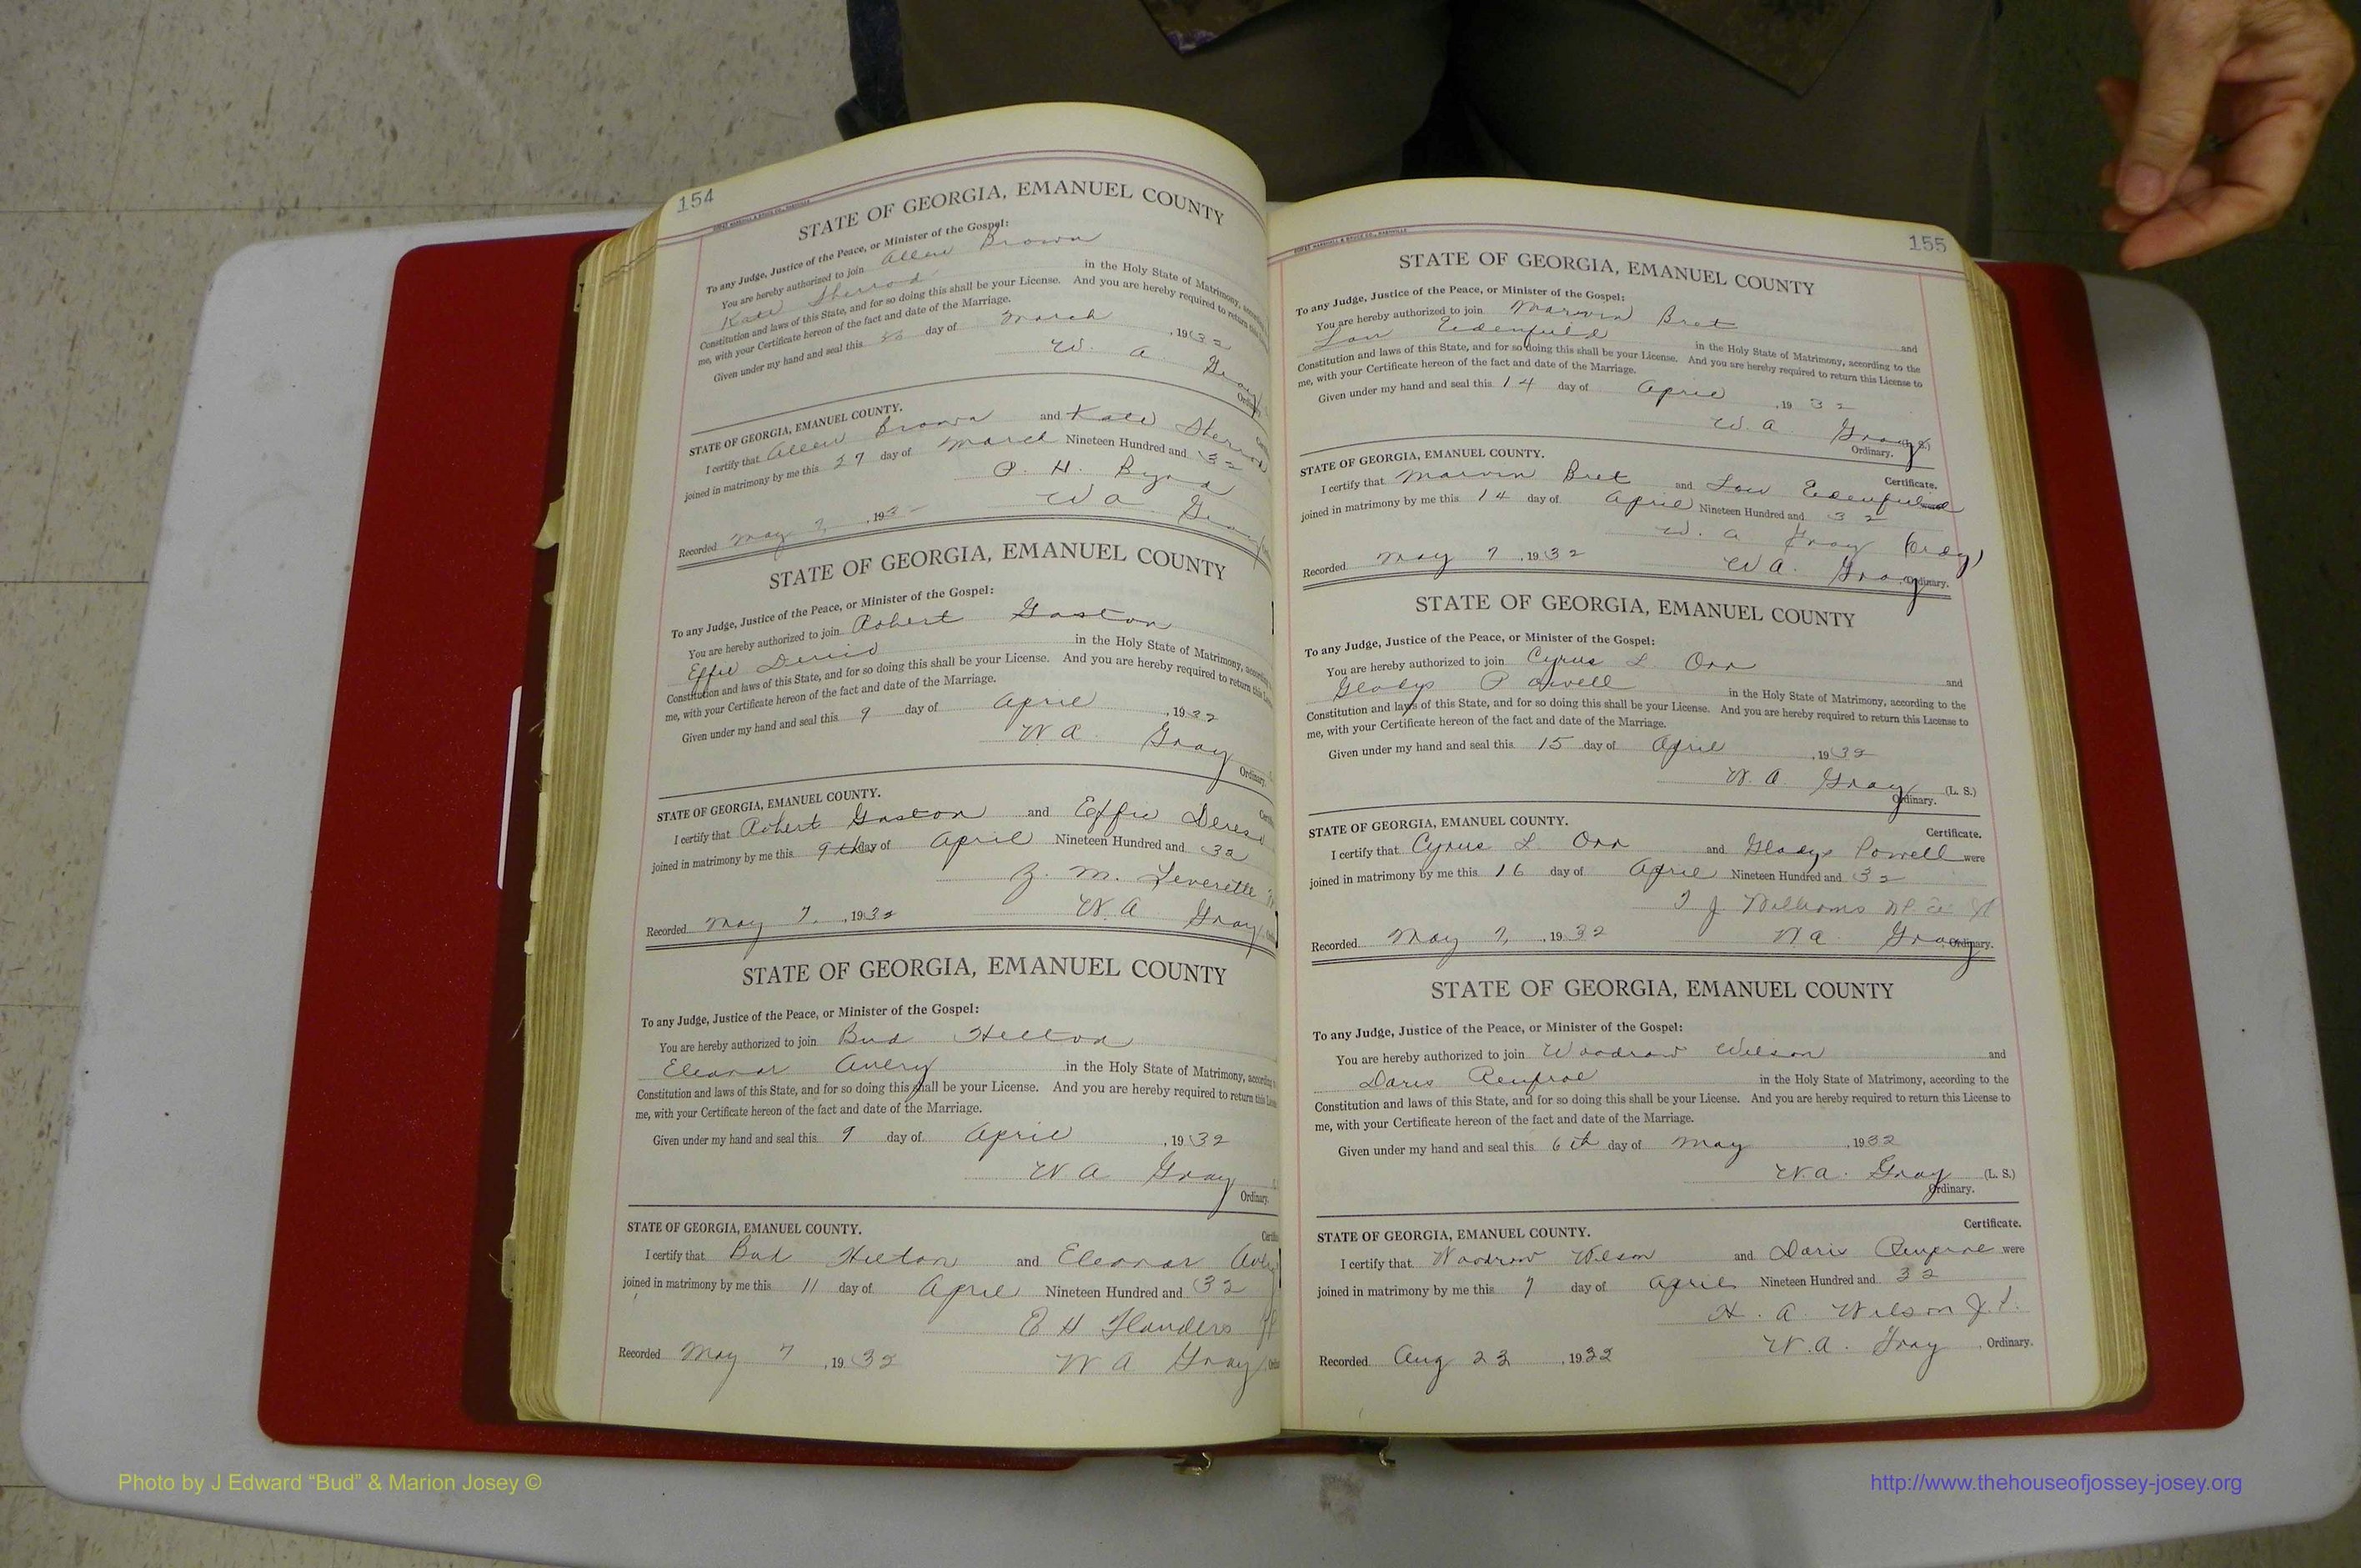 154
STATE OF GEORGIA, EMANUEL COUNTY
To any Judge, Justice of the Peace, or Minister of the Gospel:
You are hereby authorized to join Allen Brown
Kate Sherrod in the Holy State of Matrimony,
Constitution and laws of this State, and for so doing this shall be your License. And you are hereby required to return
me, with your Certificate hereon of the fact and date of the Marriage.
Given under my hand and seal this day of March , 1932
W. A. Gray
STATE OF GEORGIA, EMANUEL COUNTY.
I certify that Allen Brown and Kate Sherrod
joined in matrimony by me this 27 day of March Nineteen Hundred and 32
P. H. Byrd
Recorded May 7, , 193 W A Gray
STATE OF GEORGIA, EMANUEL COUNTY
To any Judge, Justice of the Peace, or Minister of the Gospel:
You are hereby authorized to join Robert Gaston
Effie in the Holy State of Matrimony,
Constitution and laws of this State, and for so doing this shall be your License. And you are hereby required to return this
me, with your Certificate hereon of the fact and date of the Marriage.
Given under my hand and seal this 9 day of April , 1932
W A Gray
Ordinary.
STATE OF GEORGIA, EMANUEL COUNTY.
I certify that Robert Gaston and Effie
joined in matrimony by me this 9th day of April Nineteen Hundred and 32
M. Leverette
Recorded May 7, , 1932 W. A Gray
STATE OF GEORGIA, EMANUEL COUNTY
To any Judge, Justice of the Peace, or Minister of the Gospel:
You are hereby authorized to join Bud Helton
Eleanor Avery in the Holy State of Matrimony, according
Constitution and laws of this State, and for so doing this shall be your License. And you are hereby required to return this
me, with your Certificate hereon of the fact and date of the Marriage.
Given under my hand and seal this 9 day of April , 1932
W A Gray
Ordinary.
STATE OF GEORGIA, EMANUEL COUNTY.
I certify that Bud Helton and Eleanor
joined in matrimony by me this 11 day of April Nineteen Hundred and 32
E H Flanders
Recorded May 7 , 1932 W A Gray
155
STATE OF GEORGIA, EMANUEL COUNTY
To any Judge, Justice of the Peace, or Minister of the Gospel:
You are hereby authorized to join Marvin Bret and
Lou Edenfield in the Holy State of Matrimony, according to the
Constitution and laws of this State, and for so doing this shall be your License. And you are hereby required to return this License to
me, with your Certificate hereon of the fact and date of the Marriage.
Given under my hand and seal this 14 day of April , 1932
W. A. Gray
Ordinary.
STATE OF GEORGIA, EMANUEL COUNTY. Certificate.
I certify that Marvin Bret and Lou Edenfield
joined in matrimony by me this 14 day of April Nineteen Hundred and 32
W. A Gray (Ordy)
Recorded May 7 , 1932 W A. Gray Ordinary.
STATE OF GEORGIA, EMANUEL COUNTY
To any Judge, Justice of the Peace, or Minister of the Gospel:
You are hereby authorized to join Cyrus L. Orr and
Gladys Powell in the Holy State of Matrimony, according to the
Constitution and laws of this State, and for so doing this shall be your License. And you are hereby required to return this License to
me, with your Certificate hereon of the fact and date of the Marriage.
Given under my hand and seal this 15 day of April , 1932
W. A. Gray (L. S.)
Ordinary.
STATE OF GEORGIA, EMANUEL COUNTY. Certificate.
I certify that Cyrus L. Orr and Gladys Powell were
joined in matrimony by me this 16 day of April Nineteen Hundred and 32
J Williams
Recorded May 7, , 1932 W A. Gray Ordinary.
STATE OF GEORGIA, EMANUEL COUNTY
To any Judge, Justice of the Peace, or Minister of the Gospel:
You are hereby authorized to join Woodrow Wilson and
Doris Renfroe in the Holy State of Matrimony, according to the
Constitution and laws of this State, and for so doing this shall be your License. And you are hereby required to return this License to
me, with your Certificate hereon of the fact and date of the Marriage.
Given under my hand and seal this 6th day of May , 1932
W. A. Gray (L. S.)
Ordinary.
STATE OF GEORGIA, EMANUEL COUNTY. Certificate.
I certify that Woodrow Wilson and Doris Renfroe were
joined in matrimony by me this 7 day of April Nineteen Hundred and 32
H. A. Wilson J. P.
Recorded Aug 23 , 1932 W. A. Gray , Ordinary.
Photo by J Edward “Bud” & Marion Josey ©
http://www.thehouseofjossey-josey.org